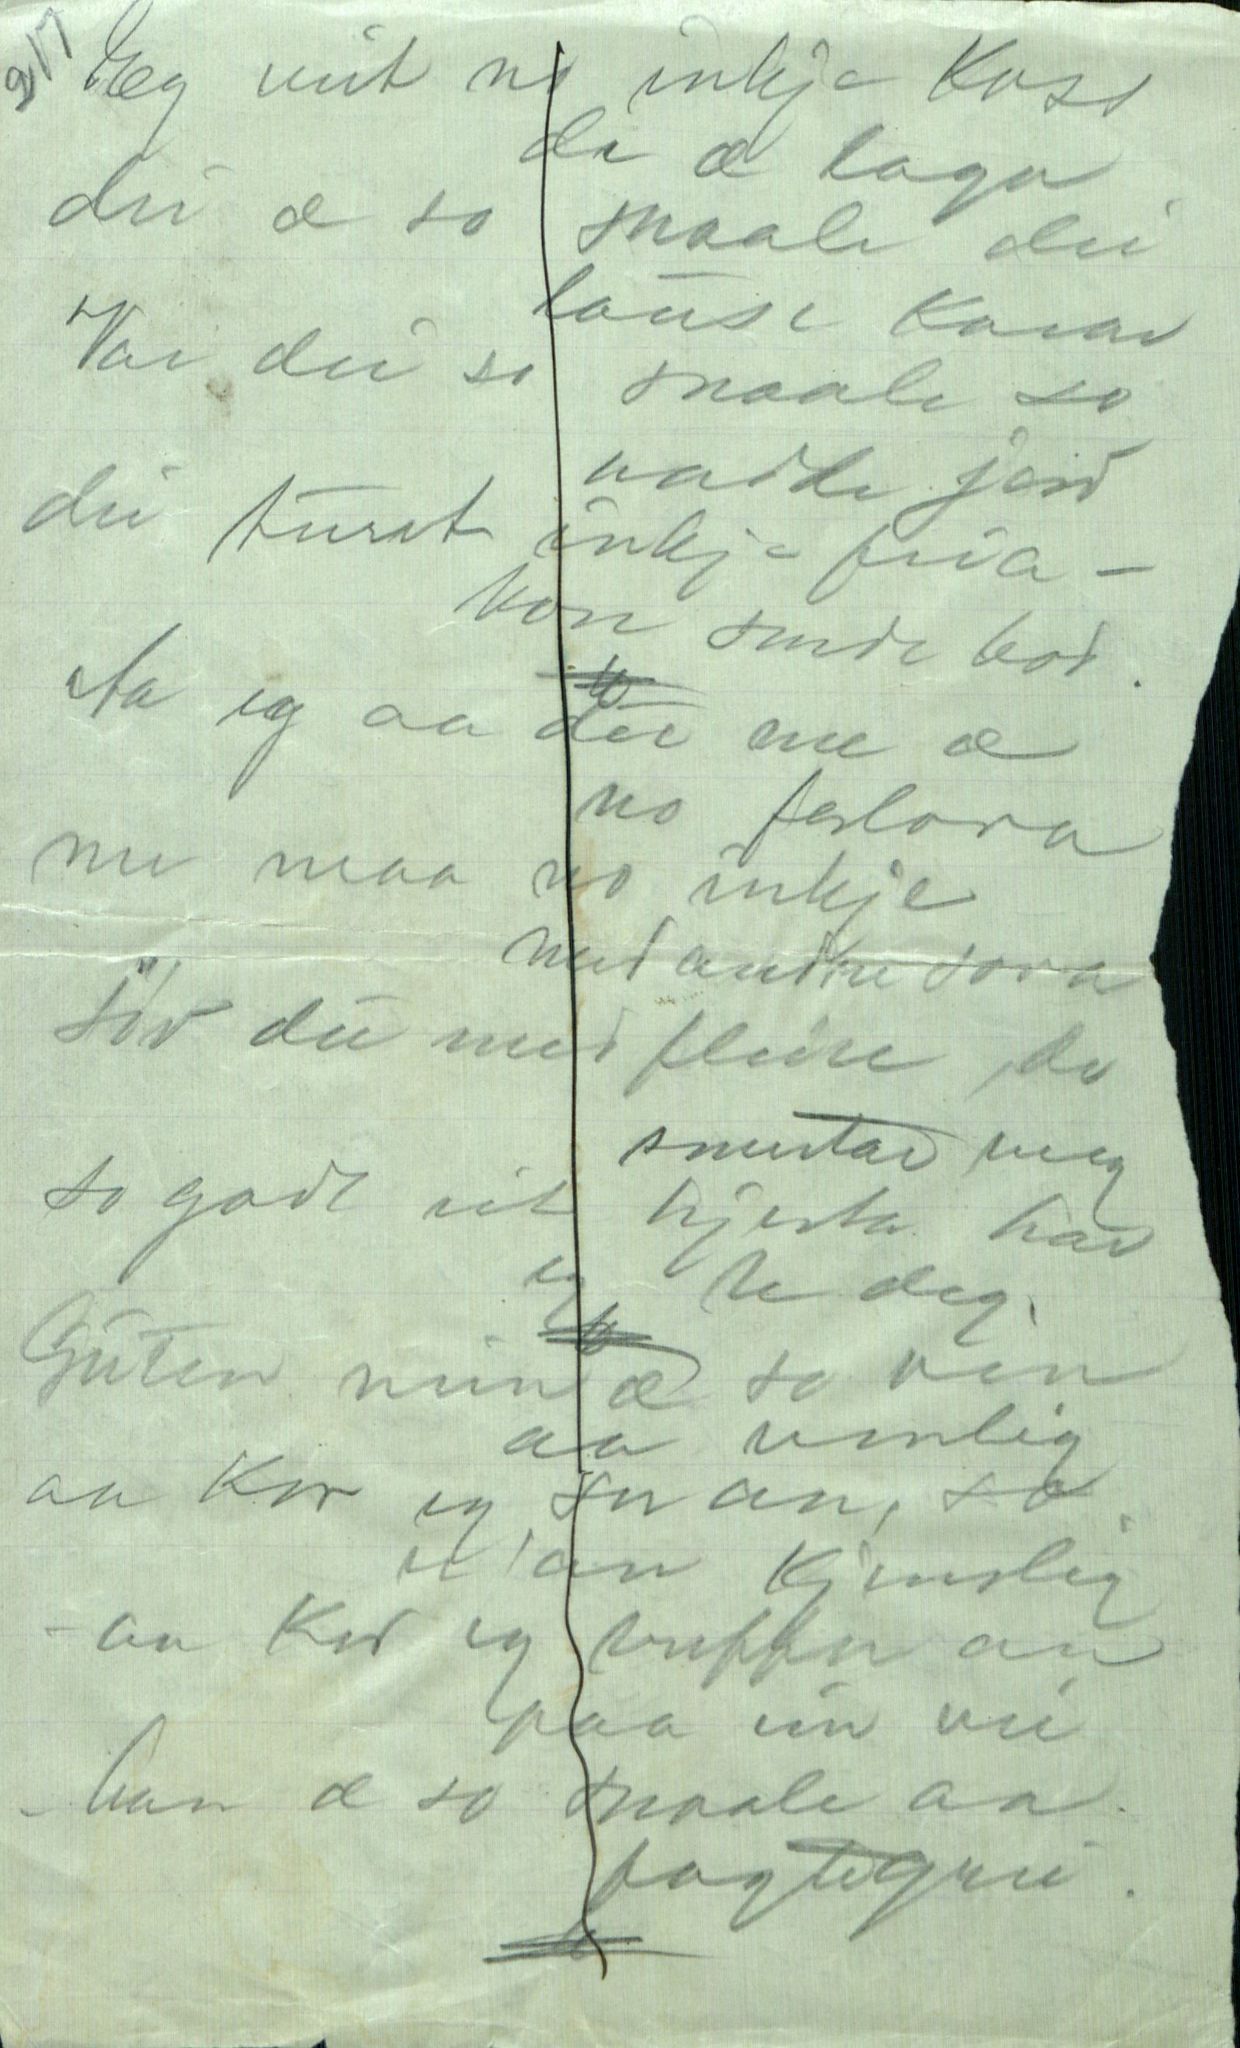 217
Eeg veit no inkje Koss
de æ laga
dei æ so snaale dei
lause Karar
Var dei so snaale so
vardt jord
dei turst inkje fria -
kon sende bod.
Aa eg aa du me æ
no forlova
me maa no inkje
med andre sova
Söv du med fleire, de
smertar meg
so godt eit hjerta har
eg te deg.
Guten min æ so ven
aa venleg
aa Kor eg ser an, so
e 'an Kjenslig
- aa Kor eg treffer an
paa ein vei
- han æ so snaale aa
fagtegrei.